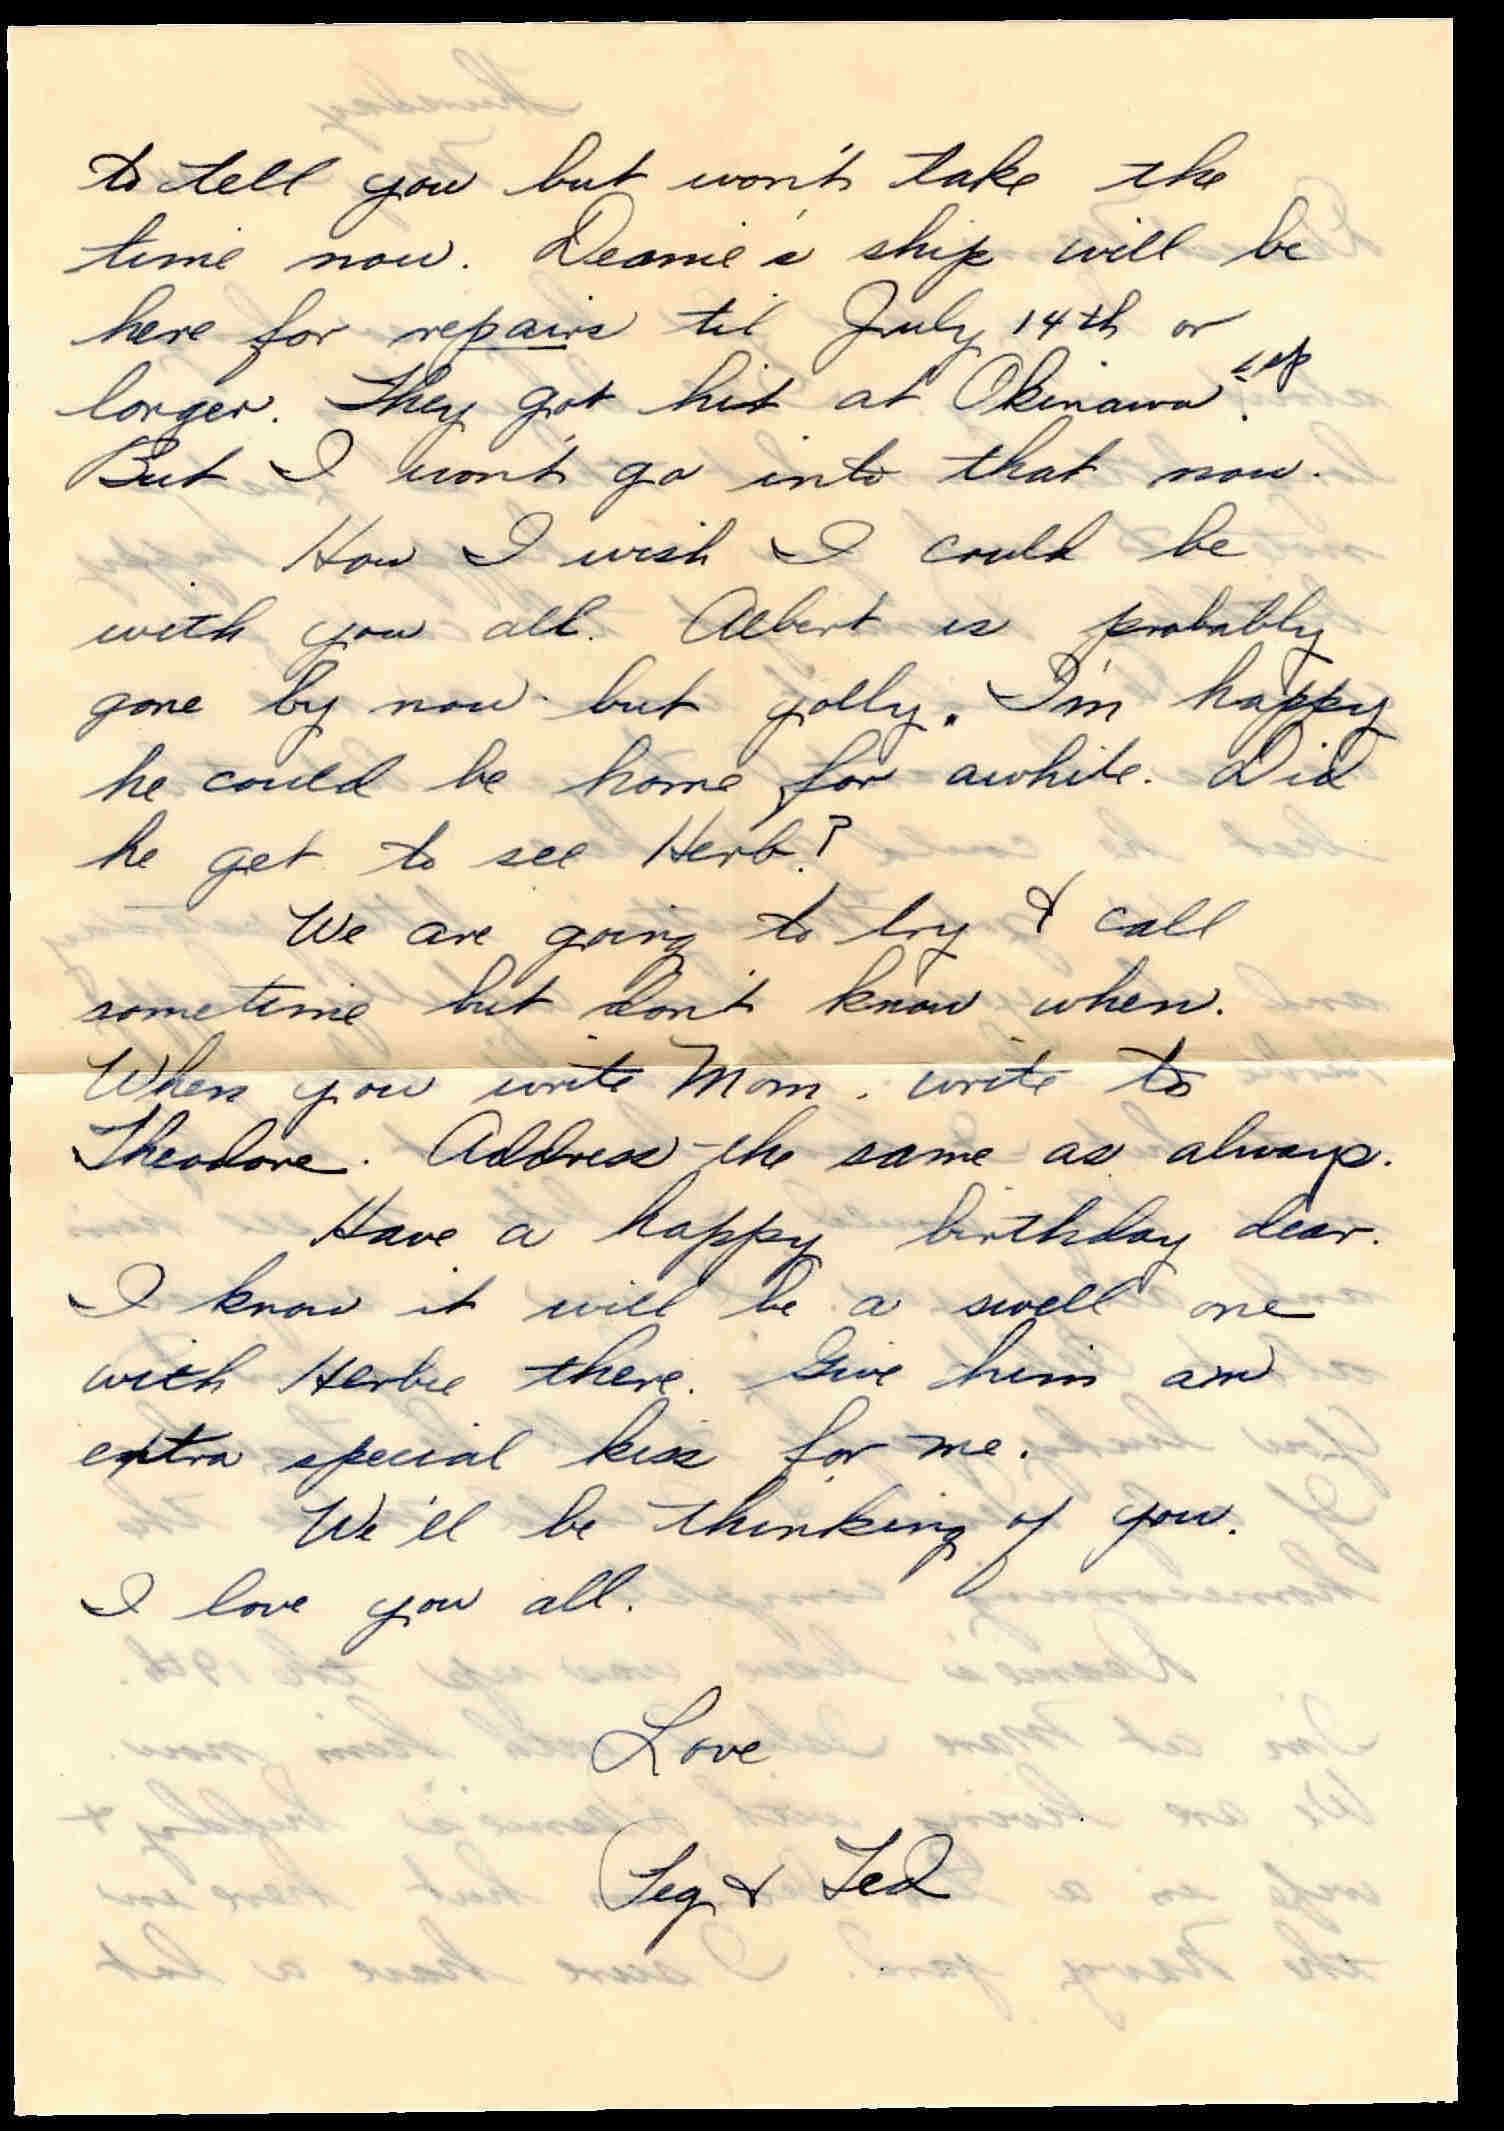 to tell you but won't take the
time now. Deanie's ship will be
here for repairs til July 14th or
longer. They got hit at Okinawa.
But I won't go into that now.
How I wish I could be
with you all. Albert is probably
gone by now but golly. I'm happy
he could be home for awhile. Did
he get to see Herb?
We are going to try & call
sometime but don't know when.
When you write Mom. write to
Theodore. Address - the same as always.
Have a happy birthday dear.
I know it will be a swell one
with Herbie there. Give him an
extra special kiss for me.
We'll be thinking of you.
I love you all.
Love
& Ted